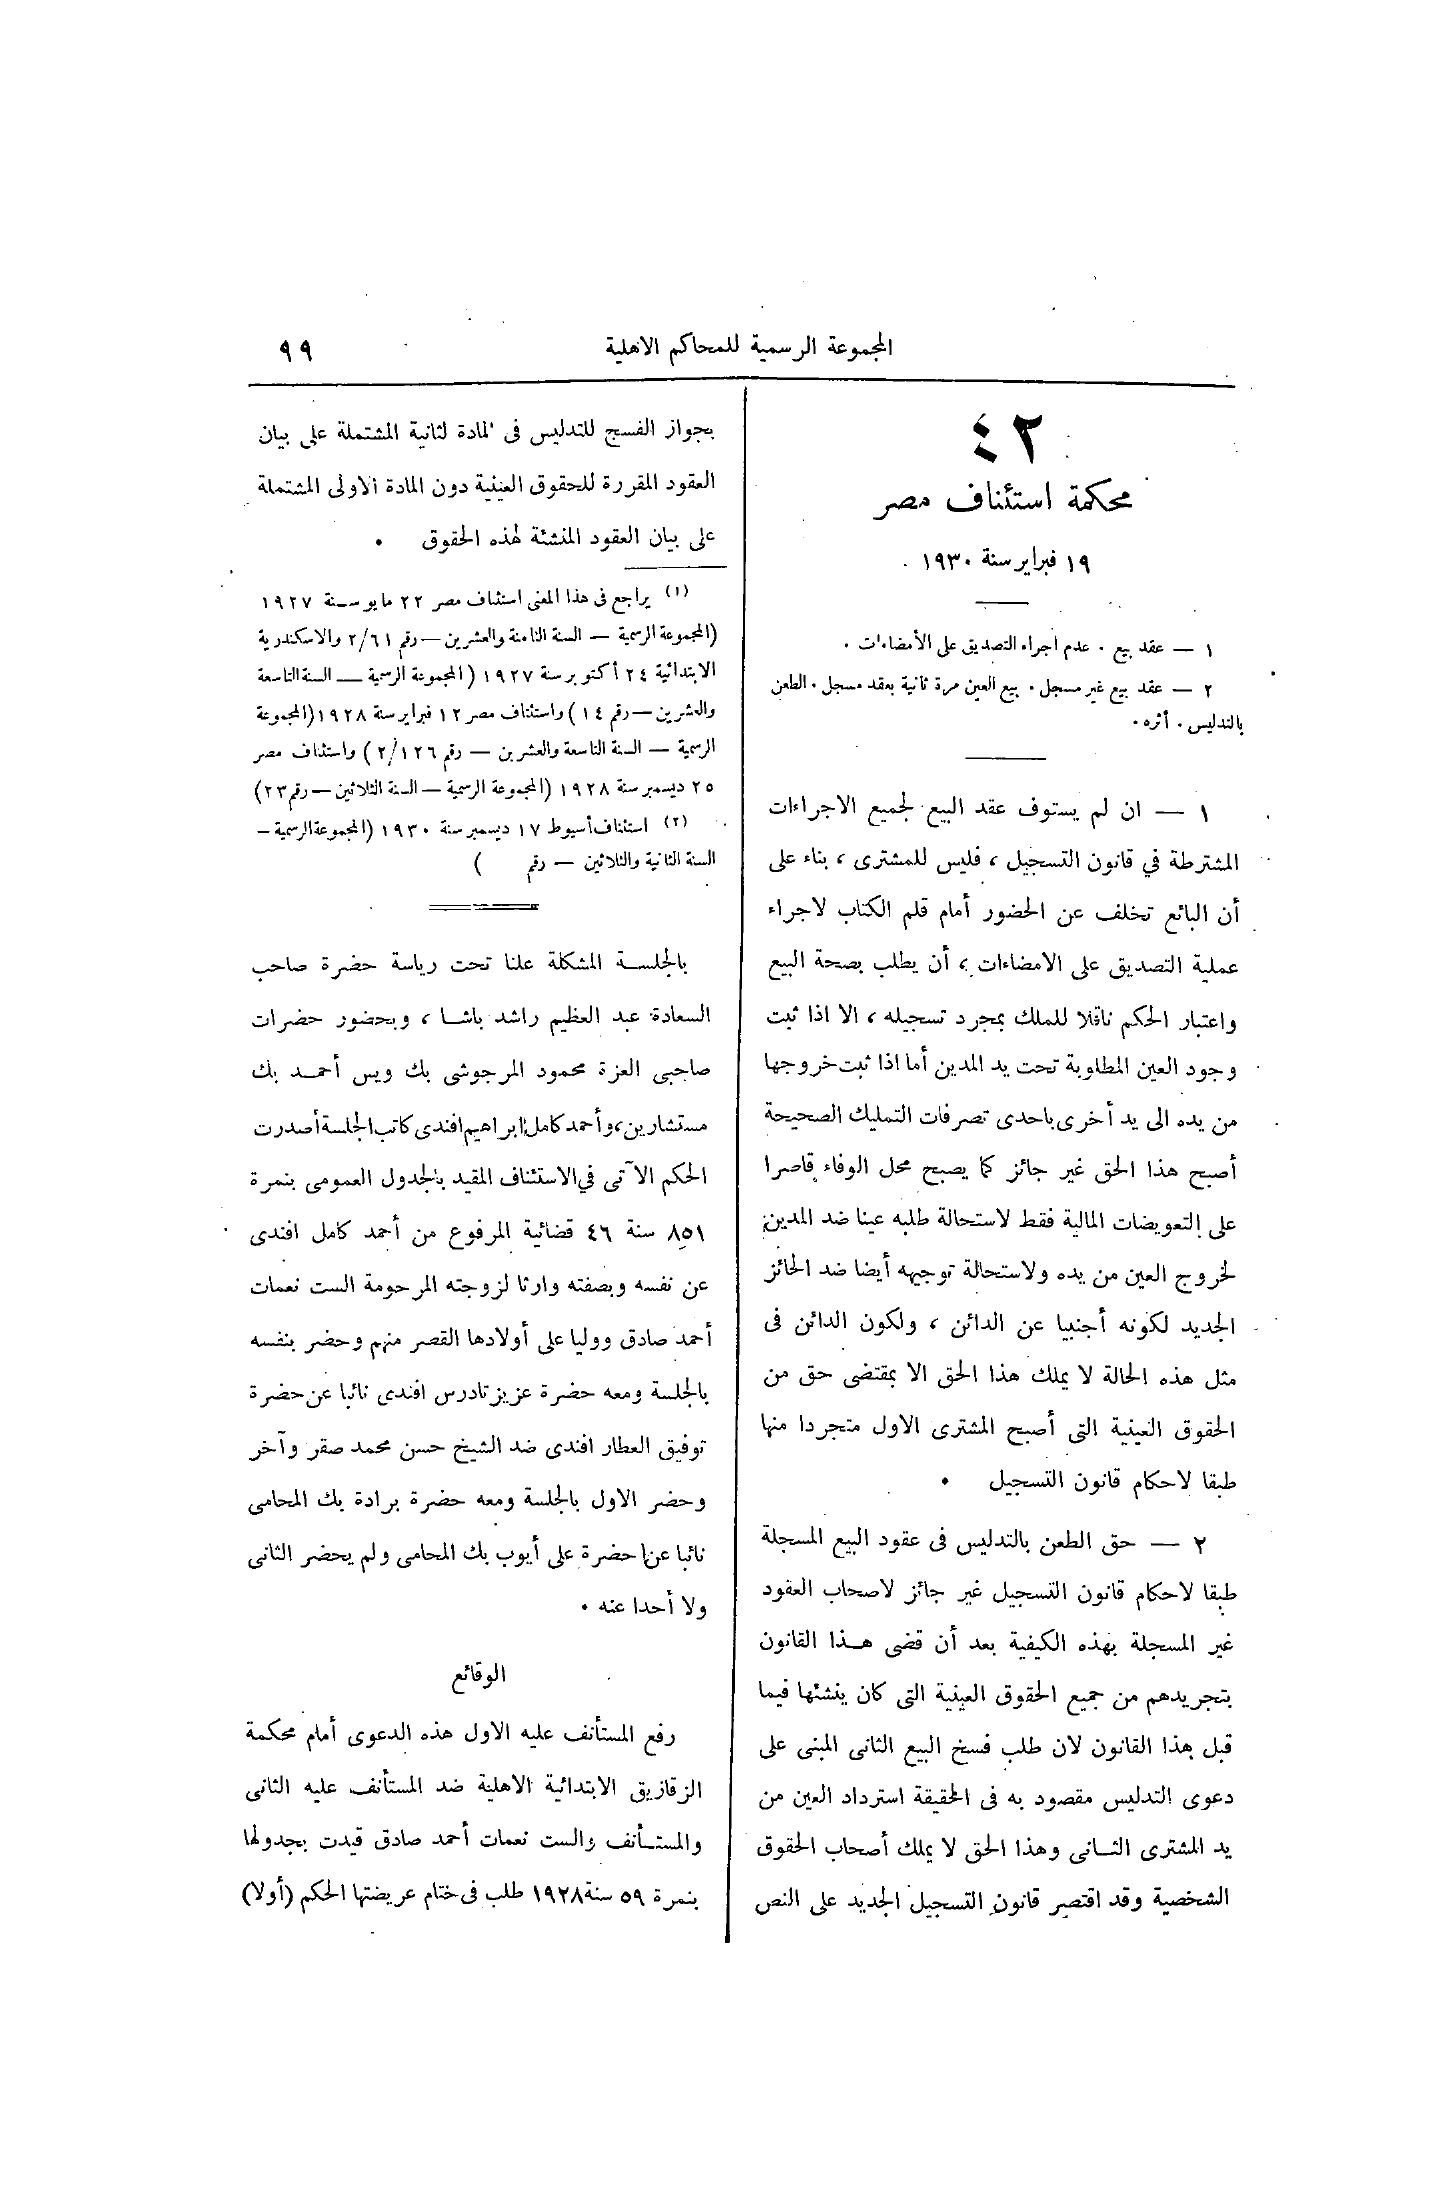 المجموعة الرسمية للمحاكم الاهلية
٩٩
٤٢
محكمة استئناف مصر
١٩ فبراير سنة ١٩٣٠ .
١ — عقد بيع . عدم اجراء التصديق على الأمضاءات .
٢ — عقد بيع غير مسجل . بيع العين مرة ثانية بعقد مسجل . الطعن
بالتدليس . أثره .
١ — ان لم يستوف عقد البيع لجميع الاجراءات
المشترطة في قانون التسجيل ، فليس للمشترى ، بناء على
أن البائع تخلف عن الحضور أمام قلم الكتاب لاجراء
عملية التصديق على الامضاءات ، أن يطلب بصحة البيع
واعتبار الحكم ناقلا للملك بمجرد تسجيله ، الا اذا ثبت
وجود العين المطلوبة تحت يد المدين أما اذا ثبت خروجها
من يده الى يد أخرى باحدى تصرفات التمليك الصحيحة
أصبح هذا الحق غير جائز كما يصبح محل الوفاء قاصرا
على التعويضات المالية فقط لاستحالة طلبه عينا ضد المدين
لخروج العين من يده ولاستحالة توجيهه أيضا ضد الحائز
الجديد لكونه أجنبيا عن الدائن ، ولكون الدائن فى
مثل هذه الحالة لا يملك هذا الحق الا بمقتضى حق من
الحقوق العينية التى أصبح المشترى الاول متجردا منها
طبقا لاحكام قانون التسجيل .
٢ — حق الطعن بالتدليس فى عقود البيع المسجلة
طبقا لاحكام قانون التسجيل غير جائز لاصحاب العقود
غير المسجلة بهذه الكيفية بعد أن قضى هذا القانون
بتجريدهم من جميع الحقوق العينية التى كان ينشئها فيما
قبل هذا القانون لان طلب فسخ البيع الثانى المبنى على
دعوى التدليس مقصود به فى الحقيقة استرداد العين من
يد المشترى الثانى وهذا الحق لا يملك أصحاب الحقوق
الشخصية وقد اقتصر قانون التسجيل الجديد على النص
بجواز الفسخ للتدليس فى المادة الثانية المشتملة على بيان
العقود المقررة للحقوق العينية دون المادة الاولى المشتملة
على بيان العقود المنشئة لهذه الحقوق .
(١) يراجع فى هذا المعنى استئناف مصر ٢٢ مايو سنة ١٩٢٧
(المجموعة الرسمية — السنة الثامنة والعشرين — رقم ٢/٦١ والاسكندرية
الابتدائية ٢٤ أكتوبر سنة ١٩٢٧ (المجموعة الرسمية — السنة التاسعة
والعشرين — رقم ١٤) واستئناف مصر ١٢ فبراير سنة ١٩٢٨ (المجموعة
الرسمية — السنة التاسعة والعشرين — رقم ٢/١٢٦) واستئناف مصر
٢٥ ديسمبر سنة ١٩٢٨ (المجموعة الرسمية — السنة الثلاثين — رقم ٢٣)
(٢) استئناف أسيوط ١٧ ديسمبر سنة ١٩٣٠ (المجموعة الرسمية —
السنة الثانية والثلاثين — رقم )
بالجلسة المشكلة علنا تحت رياسة حضرة صاحب
السعادة عبد العظيم راشد باشا ، وبحضور حضرات
صاحبى العزة محمود المرجوشى بك ويس أحمد بك
مستشارين ، وأحمد كامل ابراهيم افندى كاتب الجلسة أصدرت
الحكم الآتى في الاستئناف المقيد بالجدول العمومى بنمرة
٨٥١ سنة ٤٦ قضائية المرفوع من أحمد كامل افندى
عن نفسه وبصفته وارثا لزوجته المرحومة الست نعمات
أحمد صادق ووليا على أولادها القصر منهم وحضر بنفسه
بالجلسة ومعه حضرة عزيز تادرس افندى نائبا عن حضرة
توفيق العطار افندى ضد الشيخ حسن محمد صقر وآخر
وحضر الاول بالجلسة ومعه حضرة برادة بك المحامى
نائبا عن حضرة على أيوب بك المحامى ولم يحضر الثانى
ولا أحدا عنه .
الوقائع
رفع المستأنف عليه الاول هذه الدعوى أمام محكمة
الزقازيق الابتدائية الاهلية ضد المستأنف عليه الثانى
والمستأنف والست نعمات أحمد صادق قيدت بجدولها
بنمرة ٥٩ سنة ١٩٢٨ طلب فى ختام عريضتها الحكم (أولا)